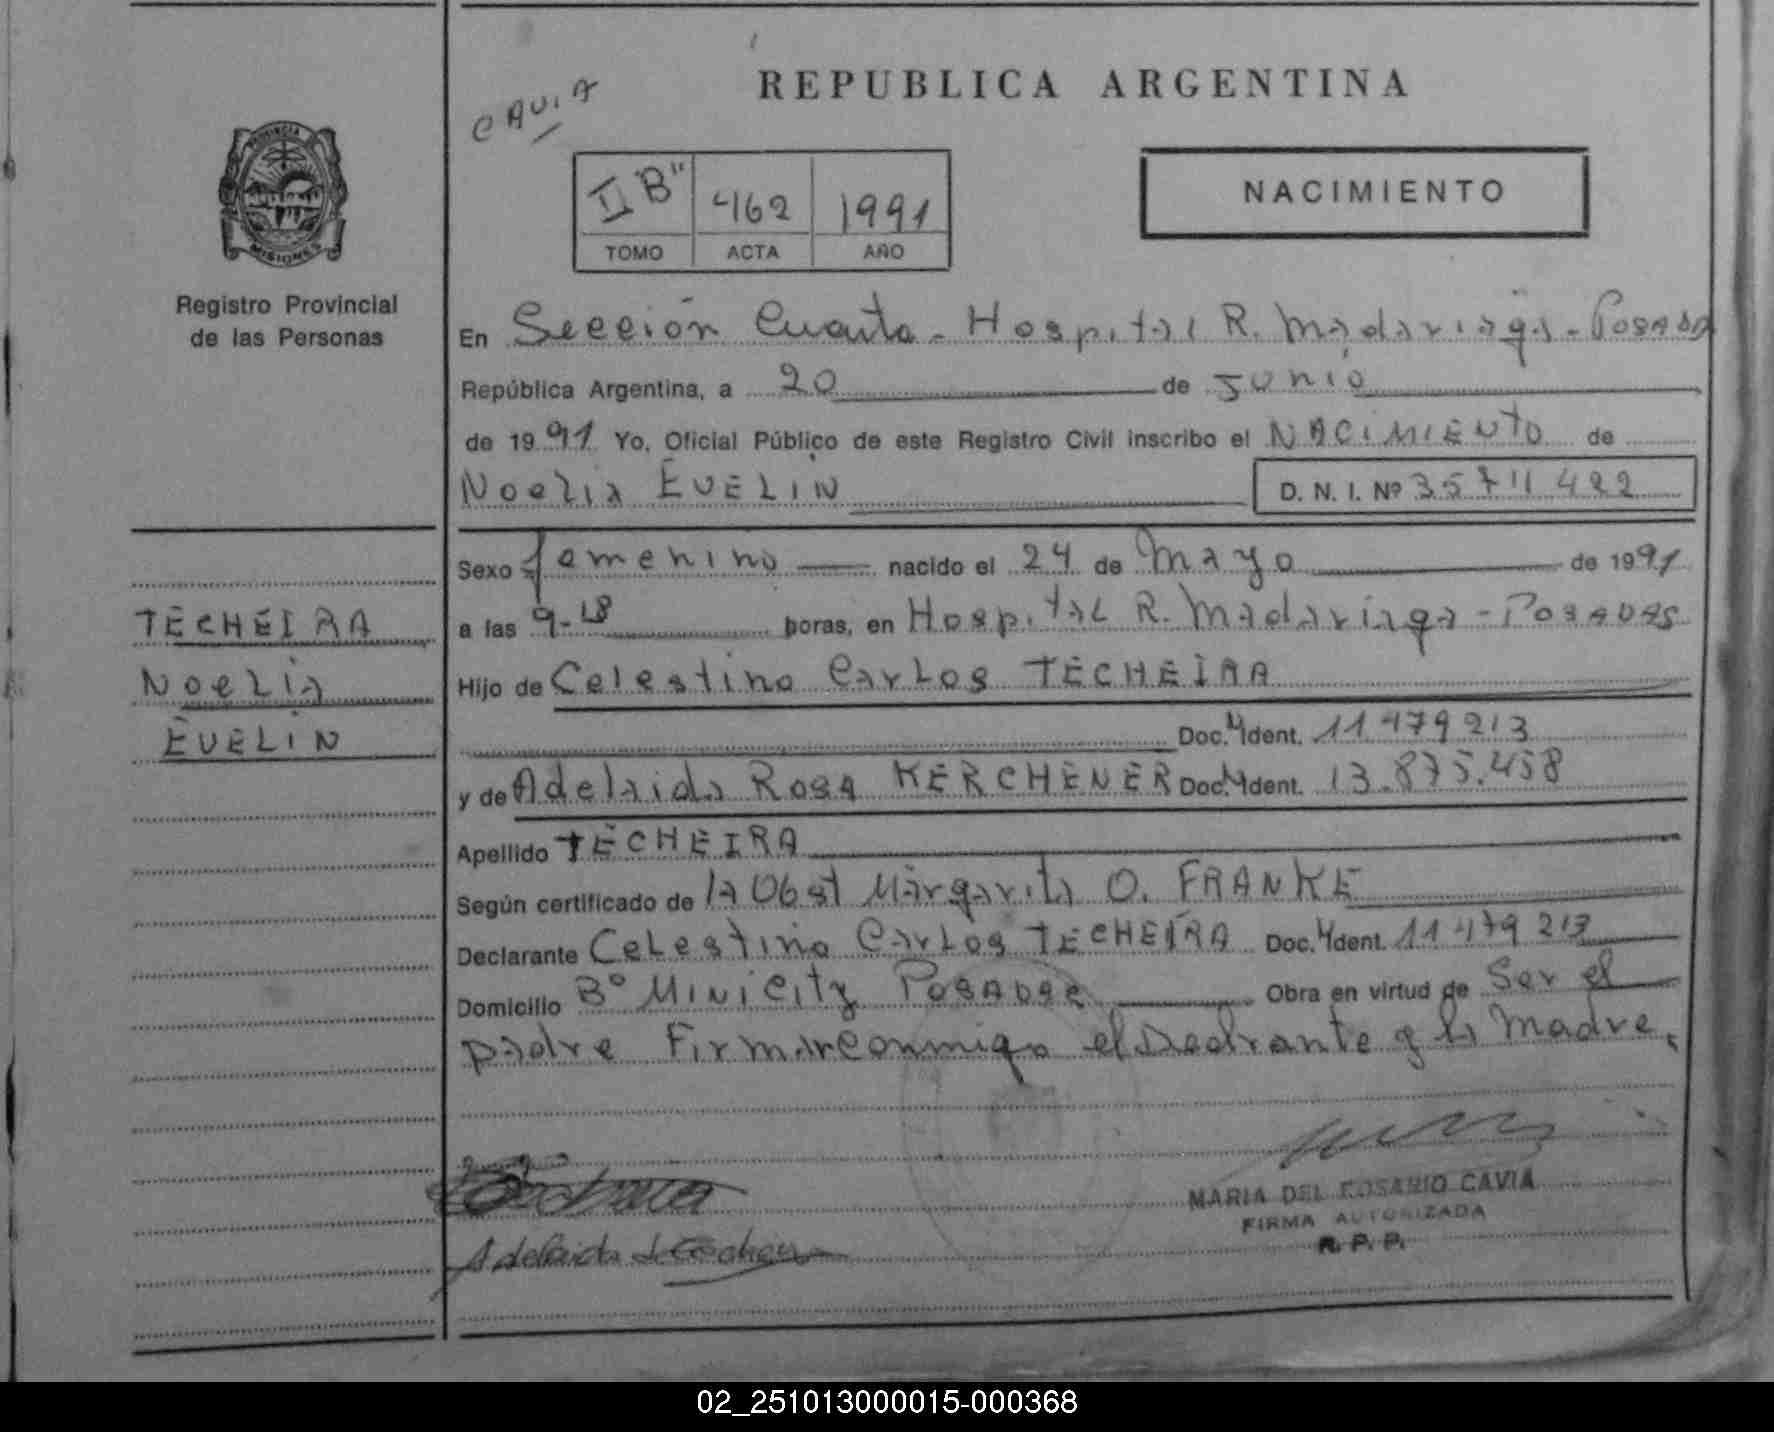 CAVIA
REPUBLICA ARGENTINA
PROVINCIA
MISIONES
Registro Provincial
de las Personas
II "B" 462 1991
TOMO ACTA AÑO
NACIMIENTO
En Sección Cuarta - Hospital R. Madariaga - POSADA
República Argentina, a 20 de Junio
de 1991 Yo, Oficial Público de este Registro Civil inscribo el NACIMIENTO de
Noelia EVELIN D. N. I. Nº 35711422
TECHEIRA
Noelia
EVELIN
Sexo femenino nacido el 24 de Mayo de 1991
a las 9-18 horas, en Hospital R. Madariaga - POSADAS
Hijo de Celestino Carlos TECHEIRA
Doc. Ident. 11479213
y de Adelaida Rosa KERCHENER Doc. Ident. 13.875.458
Apellido TECHEIRA
Según certificado de la Obst Margarita O. FRANKE
Declarante Celestino Carlos TECHEIRA Doc. Ident. 11479213
Domicilio Bº MINICITY POSADAS Obra en virtud de Ser el
padre Firman conmigo el Declarante y la Madre.
MARIA DEL ROSARIO CAVIA
FIRMA AUTORIZADA
R. P. P.
02_251013000015-000368